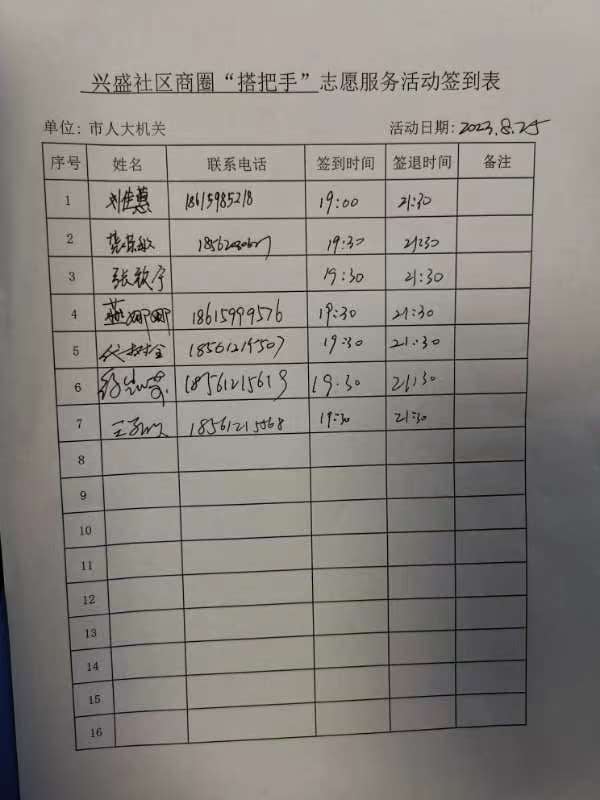 兴盛社区商圈“搭把手”志愿服务活动签到表
单位：市人大机关 活动日期：2023.8.25
序号 姓名 联系电话 签到时间 签退时间 备注
1 刘佳蕙 18615985218 19:00 21:30
2 19:30 21:30
3 张钦宁 19:30 21:30
4 燕娜娜 18615999576 19:30 21:30
5 19:30 21:30
6 18561215619 19:30 21:30
7 19:30 21:30
8
9
10
11
12
13
14
15
16